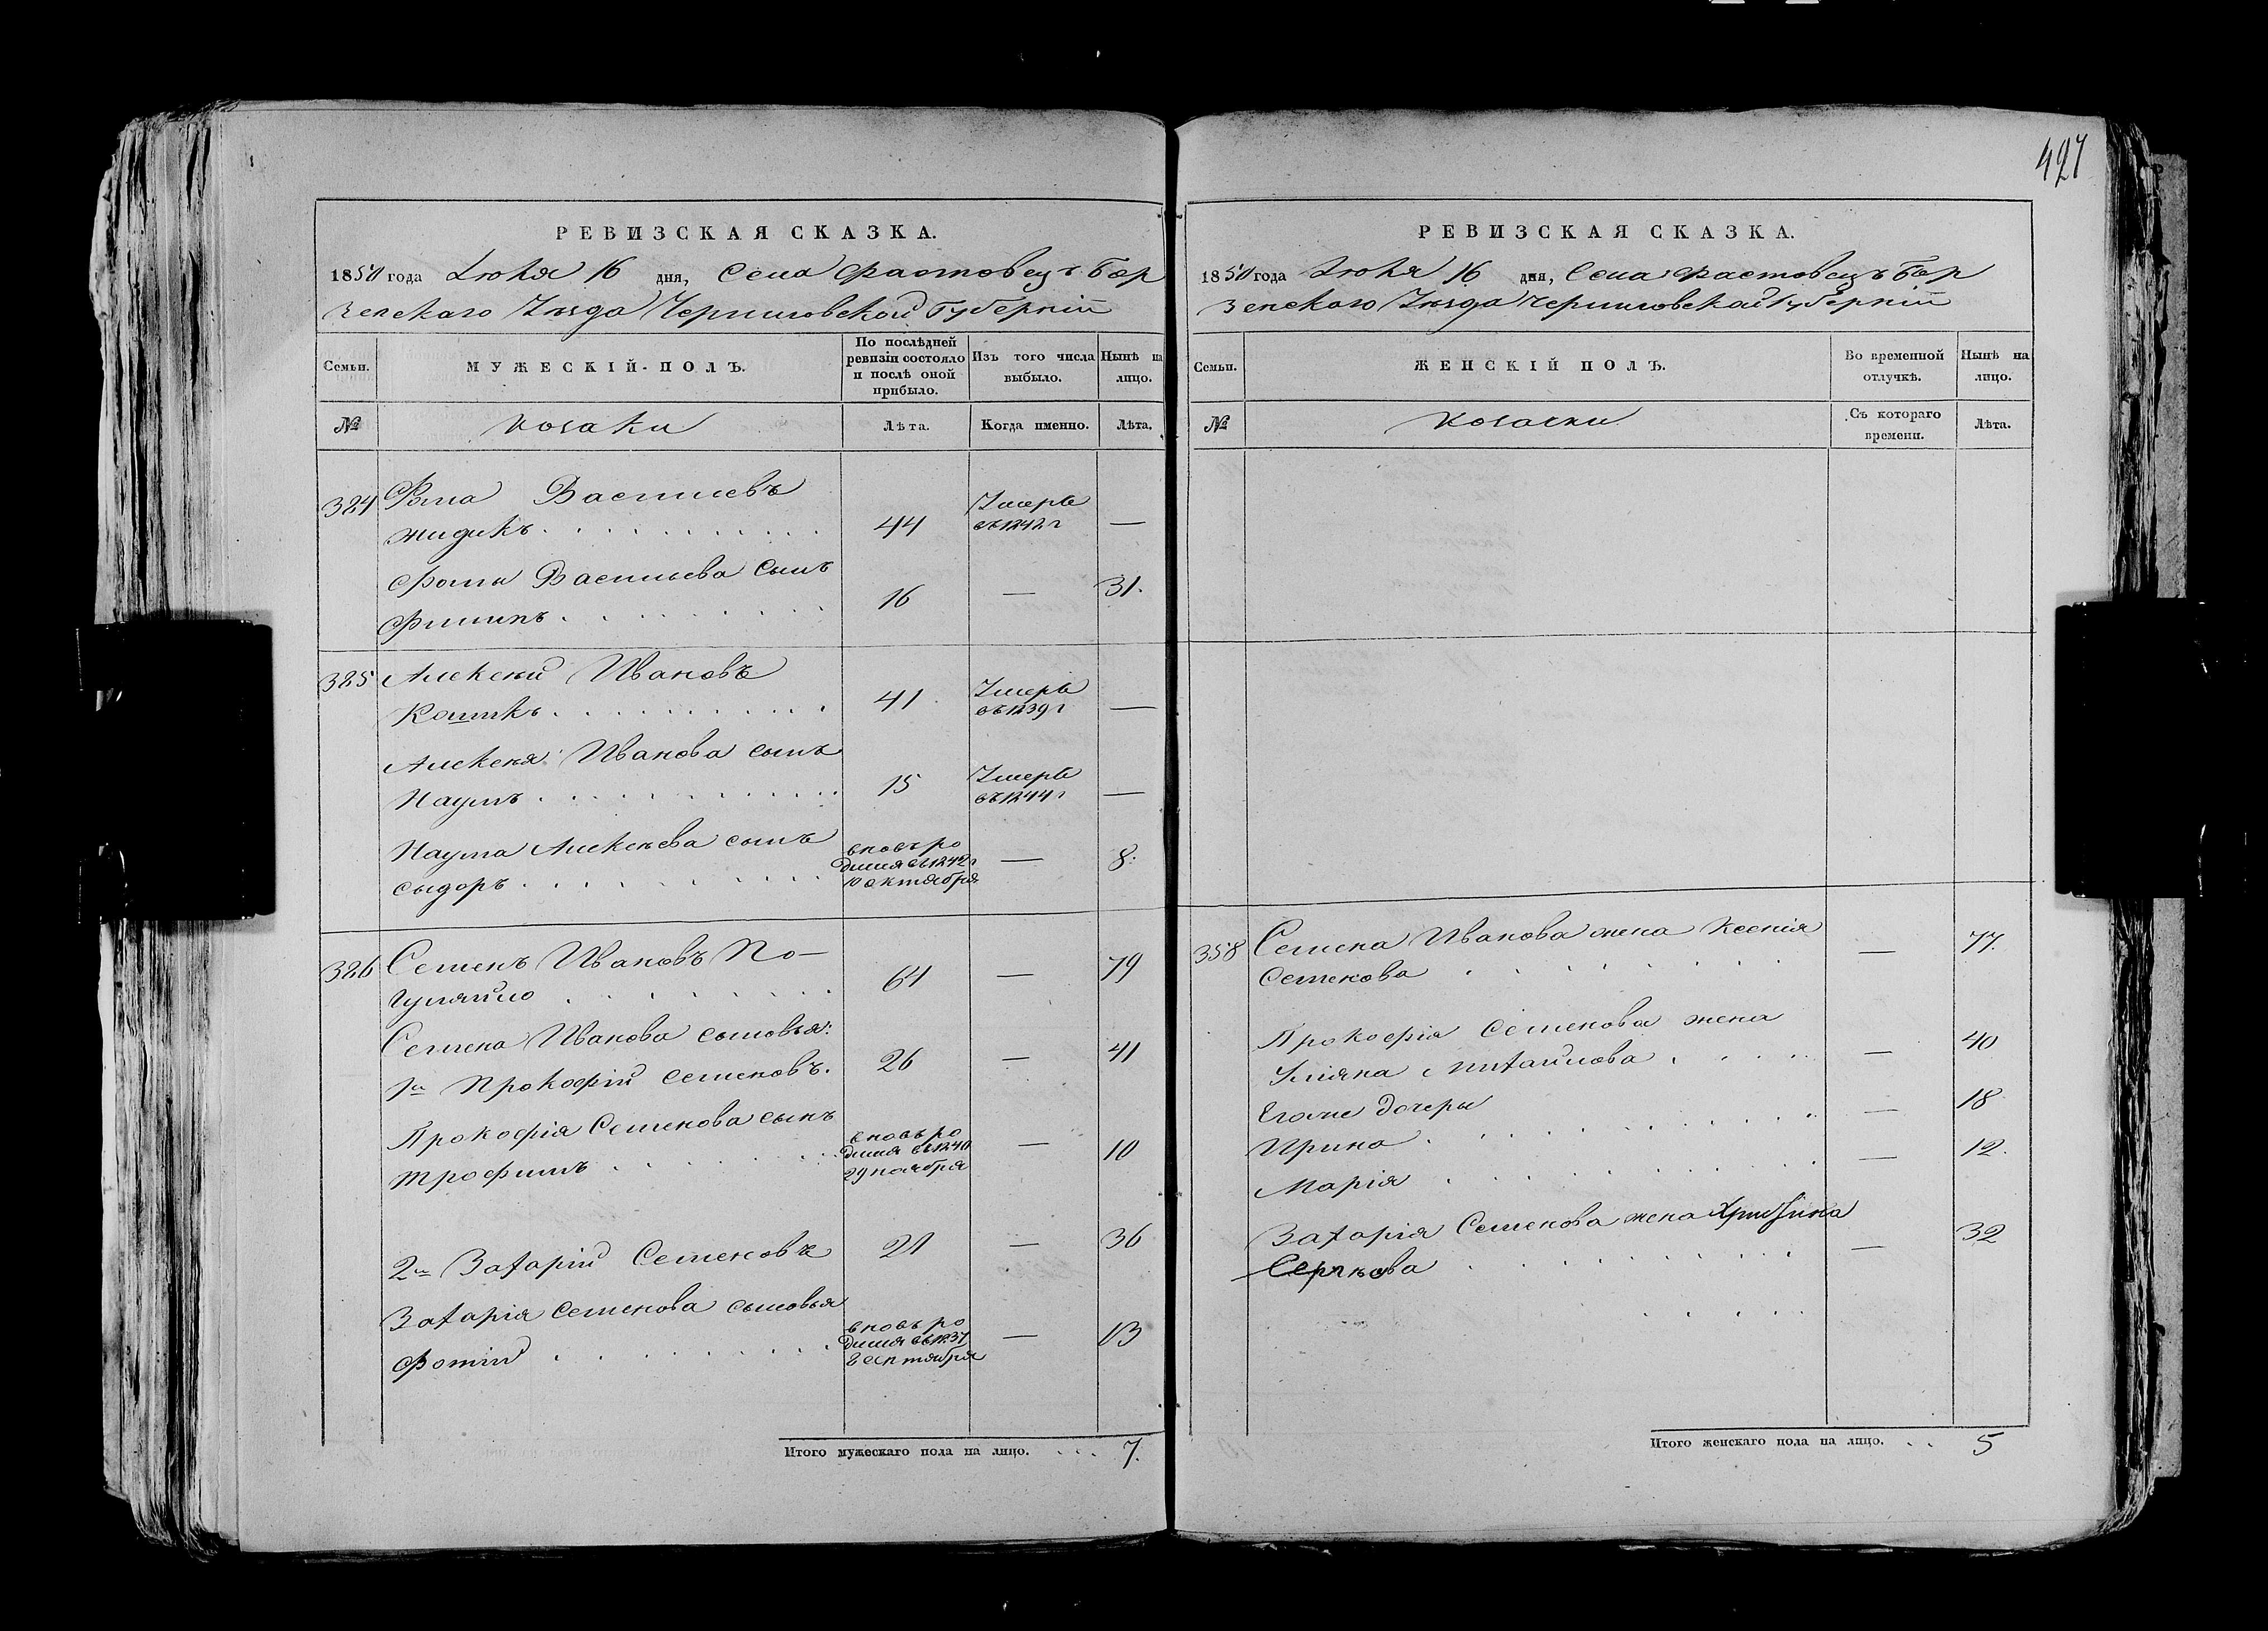 427
РЕВИЗСКАЯ СКАЗКА.
1850 года Июня 16 дня, Села Фастовецъ Бор
зенскаго Уезда Черниговской Губерніи
Семьи.
МУЖЕСКІЙ ПОЛЪ.
По послѣдней ревизіи состояло и послѣ оной прибыло.
Изъ того числа выбыло.
Нынѣ на лицо.
№
Козаки
Лѣта.
Когда именно.
Лѣта.
324 Фома Васильевъ
Жидикъ 44 Умеръ въ 1842 г —
Фомы Васильева сынъ
Филипъ 16 — 31.
325 Алексей Ивановъ
41 Умеръ въ 1839 г —
Алексея Иванова сынъ
Наумъ 15 Умеръ въ 1844 г —
Наума Алексеева сынъ
Сыдоръ вновь ро дился въ 1842 г 10 октября — 8.
326 Семенъ Ивановъ По-
гуляйло 64 — 79
Семена Иванова сыновья:
1й Прокофій Семеновъ. 26 — 41
Прокофія Семенова сынъ
Трофимъ вновь ро дился въ 1840 29 ноября — 10
2й Захарій Семеновъ 21 — 36
Захарія Семенова сыновья
Фотій вновь ро дился въ 1837 8 сентября — 13
Итого мужескаго пола на лицо. . . . 7.
РЕВИЗСКАЯ СКАЗКА.
1850 года Июня 16 дня, Села Фастовецъ Бор
зенскаго Уезда Черниговской Губерніи
Семьи.
ЖЕНСКІЙ ПОЛЪ.
Во временной отлучкѣ.
Нынѣ на лицо.
№
Козачки
Съ котораго времени.
Лѣта.
358 Семена Иванова жена Ксенія
Семенова — 77.
Прокофія Семенова жена
Уліяна Михайлова — 40
Егоже дочеры
Ирина — 18
Марія — 12.
Захарія Семенова жена Христина
— 32
Итого женскаго пола на лицо. . . 5